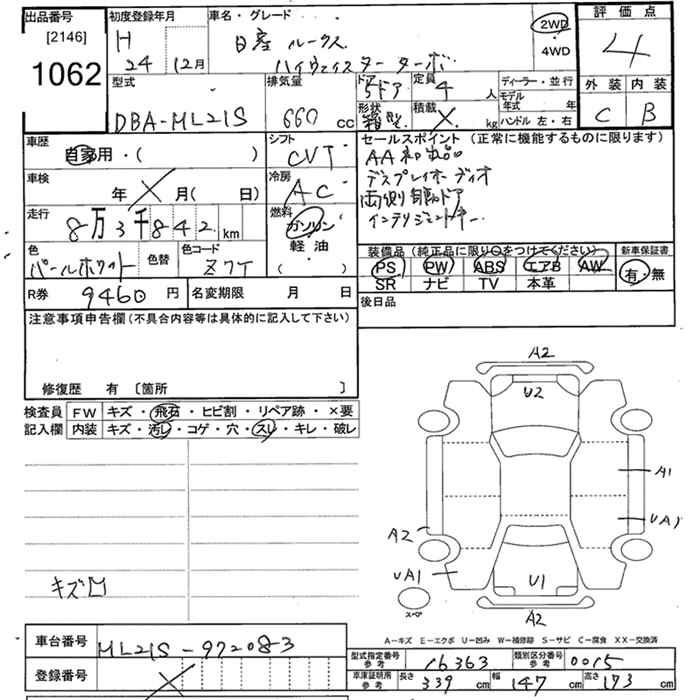 出品番号
[2146]
1062
初度登録年月
H
24 12月
車名・グレード
日産 ルークス
ハイウェイスター ターボ
2WD
4WD
評価点
4
外装 内装
C B
型式
DBA-ML21S
排気量
660 cc
ドア
5ドア
定員
4 人
形状
箱型
積載
X kg
ディーラー・並行
モデル
年式 年
ハンドル 左・右
車歴
自家用・( )
シフト
CVT
セールスポイント (正常に機能するものに限ります)
AA
ディスプレイオーディオ
両側自動ドア
インテリジェントキー
車検
年 X 月( 日)
冷房
AC
走行
8万3千842 km
燃料
ガソリン
軽油
( )
色
パールホワイト
色替
色コード
Z7T
装備品 (純正品に限り○をつけてください)
PS PW ABS エアB AW
SR ナビ TV 本革
新車保証書
有・無
R券 9460 円
名変期限 月 日
後日品
注意事項申告欄(不具合内容等は具体的に記入して下さい)
修復歴 有 〔箇所 〕
検査員
記入欄
FW キズ・飛石・ヒビ割・リペア跡・×要
内装 キズ・汚レ・コゲ・穴・スレ・キレ・破レ
A2
U2
A1
UA1
A2
UA1
U1
A2
スペア
キズ凹
A-キズ E-エクボ U-凹み W-補修跡 S-サビ C-腐食 XX-交換済
車台番号 ML21S-972083
登録番号 X
型式指定番号
参考
16363
類別区分番号
参考
0015
車庫証明用
参考
長さ 339 cm 幅 147 cm 高さ 173 cm